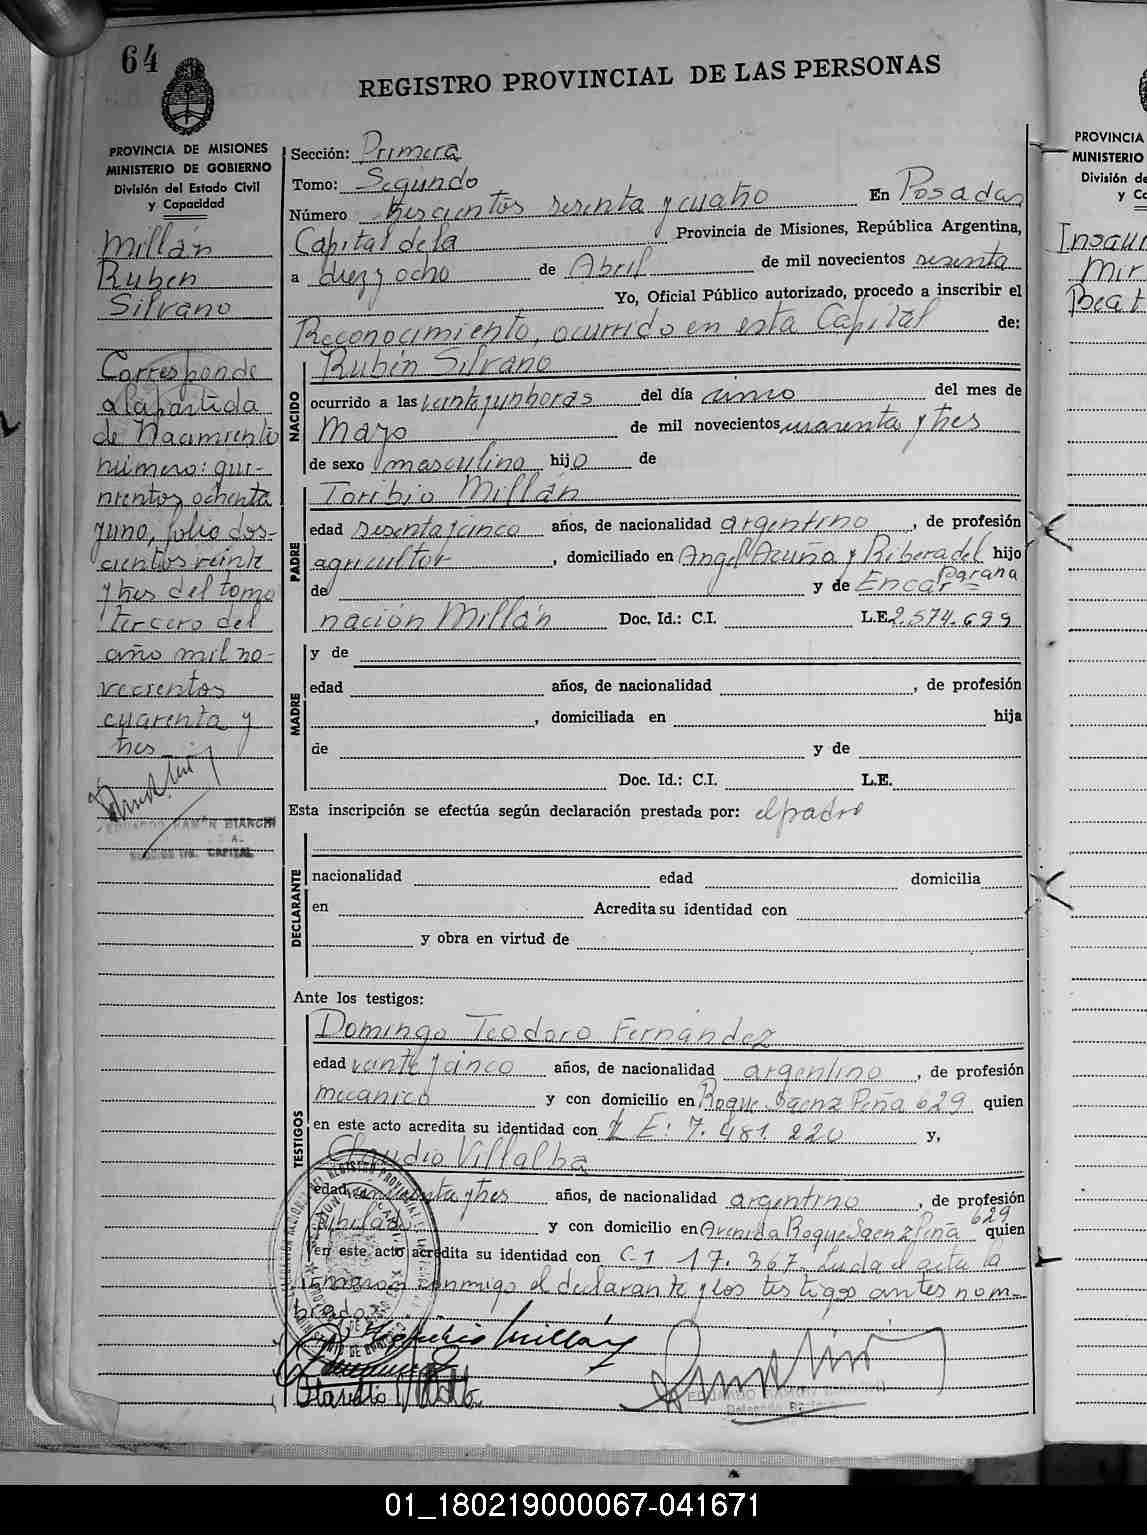 64
REGISTRO PROVINCIAL DE LAS PERSONAS
PROVINCIA DE MISIONES
MINISTERIO DE GOBIERNO
División del Estado Civil
y Capacidad
Millán
Ruben
Silvano
Corresponde
a la partida
de Nacimiento
número: qui-
nientos ochenta
y uno, folio dos-
cientos veinte
y tres del tomo
tercero del
año mil no-
vecientos
cuarenta y
tres
BIANCHI
CAPITAL
Sección: Primera
Tomo: Segundo
Número trescientos sesenta y cuatro En Posadas
Capital de la Provincia de Misiones, República Argentina,
a diez y ocho de Abril de mil novecientos sesenta
Yo, Oficial Público autorizado, procedo a inscribir el
Reconocimiento, ocurrido en esta Capital de:
NACIDO
Rubén Silvano
ocurrido a las veinte y un horas del día cinco del mes de
Mayo de mil novecientos cuarenta y tres
de sexo masculino hijo de
PADRE
Toribio Millán
edad sesenta y cinco años, de nacionalidad argentino, de profesión
agricultor, domiciliado en Angel Acuña y Ribera del hijo
Parana
de y de Encar=
nación Millán Doc. Id.: C.I. L.E. 2.574.699
MADRE
y de
edad años, de nacionalidad , de profesión
, domiciliada en hija
de y de
Doc. Id.: C.I. L.E.
Esta inscripción se efectúa según declaración prestada por: el padre
DECLARANTE
nacionalidad edad domicilia
en Acredita su identidad con
y obra en virtud de
Ante los testigos:
TESTIGOS
Domingo Teodoro Fernández
edad veinte y cinco años, de nacionalidad argentino, de profesión
mecanico y con domicilio en Roque Saenz Peña 629 quien
en este acto acredita su identidad con L E: 7.481.220 y,
Claudio Villalba
edad y tres años, de nacionalidad argentino, de profesión
Jubilado y con domicilio en Avenida Roque Saenz Peña 629 quien
en este acto acredita su identidad con C-I 17.367. Leida el acta la
firmaron conmigo el declarante y los testigos antes nom-
brados
Millán
PROVINCIA
MINISTERIO
División de
y Ca
Insaur
Mir
Beat
01_180219000067-041671